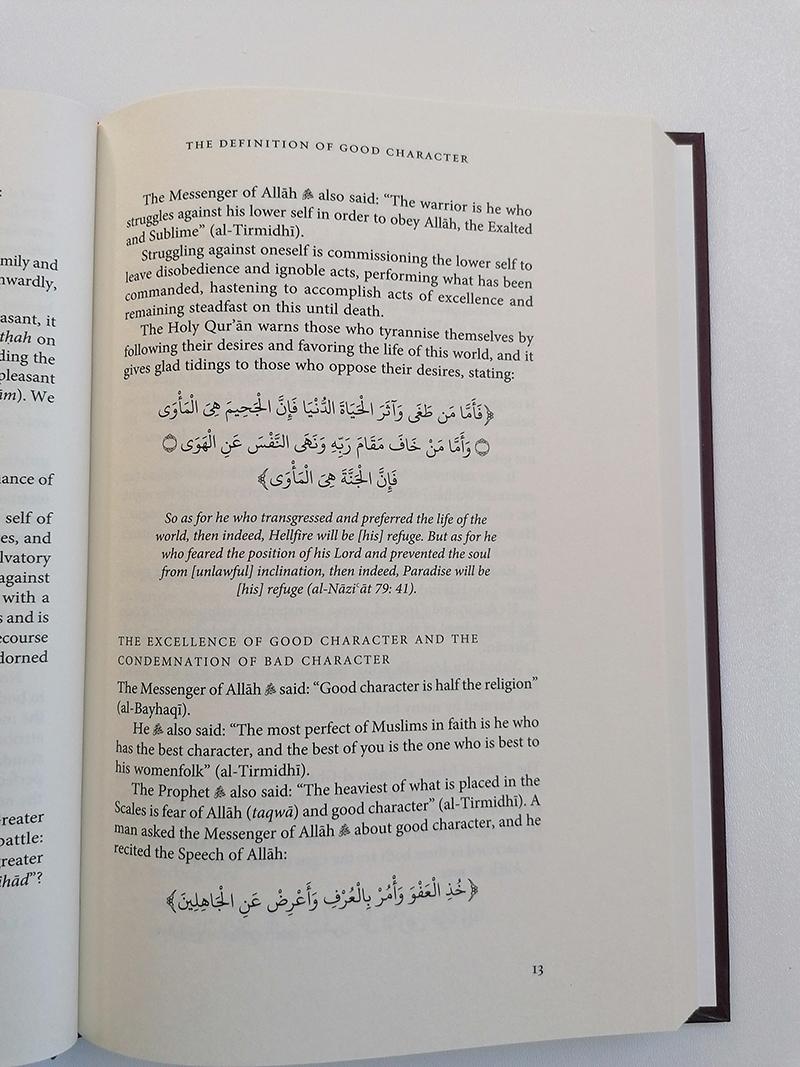 mily and
nwardly,
asant, it
thah on
ding the
pleasant
ām). We
ance of
self of
es, and
lvatory
against
with a
s and is
ecourse
dorned
reater
battle:
reater
ihād”?
THE DEFINITION OF GOOD CHARACTER
The Messenger of Allāh ﷺ also said: “The warrior is he who
struggles against his lower self in order to obey Allāh, the Exalted
and Sublime” (al-Tirmidhī).
Struggling against oneself is commissioning the lower self to
leave disobedience and ignoble acts, performing what has been
commanded, hastening to accomplish acts of excellence and
remaining steadfast on this until death.
The Holy Qur’ān warns those who tyrannise themselves by
following their desires and favoring the life of this world, and it
gives glad tidings to those who oppose their desires, stating:
﴿فَأَمَّا مَن طَغَى وَآثَرَ الْحَيَاةَ الدُّنْيَا فَإِنَّ الْجَحِيمَ هِيَ الْمَأْوَى
۝ وَأَمَّا مَنْ خَافَ مَقَامَ رَبِّهِ وَنَهَى النَّفْسَ عَنِ الْهَوَى ۝
فَإِنَّ الْجَنَّةَ هِيَ الْمَأْوَى﴾
So as for he who transgressed and preferred the life of the
world, then indeed, Hellfire will be [his] refuge. But as for he
who feared the position of his Lord and prevented the soul
from [unlawful] inclination, then indeed, Paradise will be
[his] refuge (al-Nāziʿāt 79: 41).
THE EXCELLENCE OF GOOD CHARACTER AND THE
CONDEMNATION OF BAD CHARACTER
The Messenger of Allāh ﷺ said: “Good character is half the religion”
(al-Bayhaqī).
He ﷺ also said: “The most perfect of Muslims in faith is he who
has the best character, and the best of you is the one who is best to
his womenfolk” (al-Tirmidhī).
The Prophet ﷺ also said: “The heaviest of what is placed in the
Scales is fear of Allāh (taqwā) and good character” (al-Tirmidhī). A
man asked the Messenger of Allāh ﷺ about good character, and he
recited the Speech of Allāh:
﴿خُذِ الْعَفْوَ وَأْمُرْ بِالْعُرْفِ وَأَعْرِضْ عَنِ الْجَاهِلِينَ﴾
13